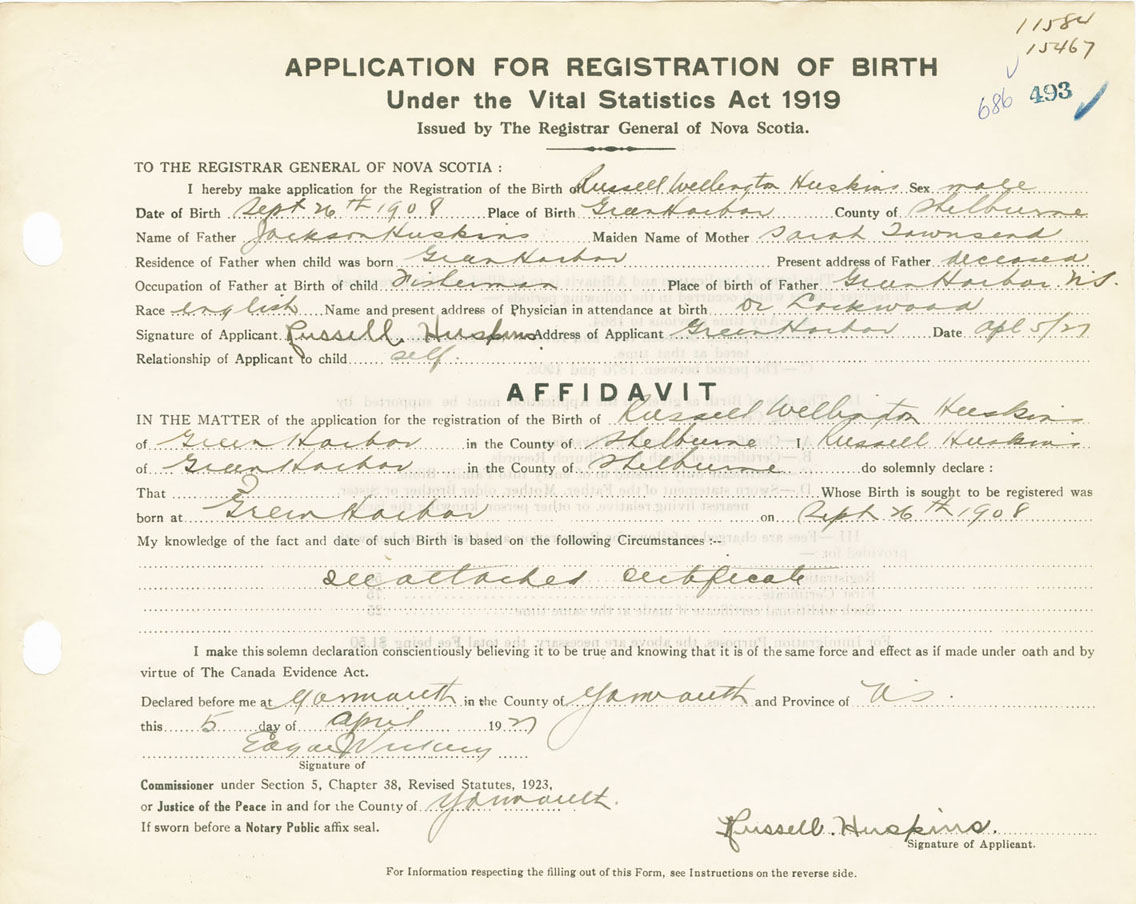 11584
15467
686 493
APPLICATION FOR REGISTRATION OF BIRTH
Under the Vital Statistics Act 1919
Issued by The Registrar General of Nova Scotia.
TO THE REGISTRAR GENERAL OF NOVA SCOTIA :
I hereby make application for the Registration of the Birth of Russell Wellington Huskins Sex male
Date of Birth Sept 26th 1908 Place of Birth Green Harbor County of Shelburne
Name of Father Jackson Huskins Maiden Name of Mother Sarah Townsend
Residence of Father when child was born Green Harbor Present address of Father deceased
Occupation of Father at Birth of child Fisherman Place of birth of Father Green Harbor. N.S.
Race English Name and present address of Physician in attendance at birth Dr Lockwood
Signature of Applicant Russell. Huskins Address of Applicant Green Harbor Date Apl 5/27
Relationship of Applicant to child self.
AFFIDAVIT
IN THE MATTER of the application for the registration of the Birth of Russell Wellington Huskins
of Green Harbor in the County of Shelburne I, Russell Huskins
of Green Harbor in the County of Shelburne do solemnly declare :
That I Whose Birth is sought to be registered was
born at Green Harbor on Sept 26th 1908
My knowledge of the fact and date of such Birth is based on the following Circumstances :--
See attached certificate
I make this solemn declaration conscientiously believing it to be true and knowing that it is of the same force and effect as if made under oath and by
virtue of The Canada Evidence Act.
Declared before me at Yarmouth in the County of Yarmouth and Province of N.S.
this 5 day of April 1927
Edgar J Vickery
Signature of
Commissioner under Section 5, Chapter 38, Revised Statutes, 1923,
or Justice of the Peace in and for the County of Yarmouth.
If sworn before a Notary Public affix seal.
Russell. Huskins.
Signature of Applicant.
For Information respecting the filling out of this Form, see Instructions on the reverse side.